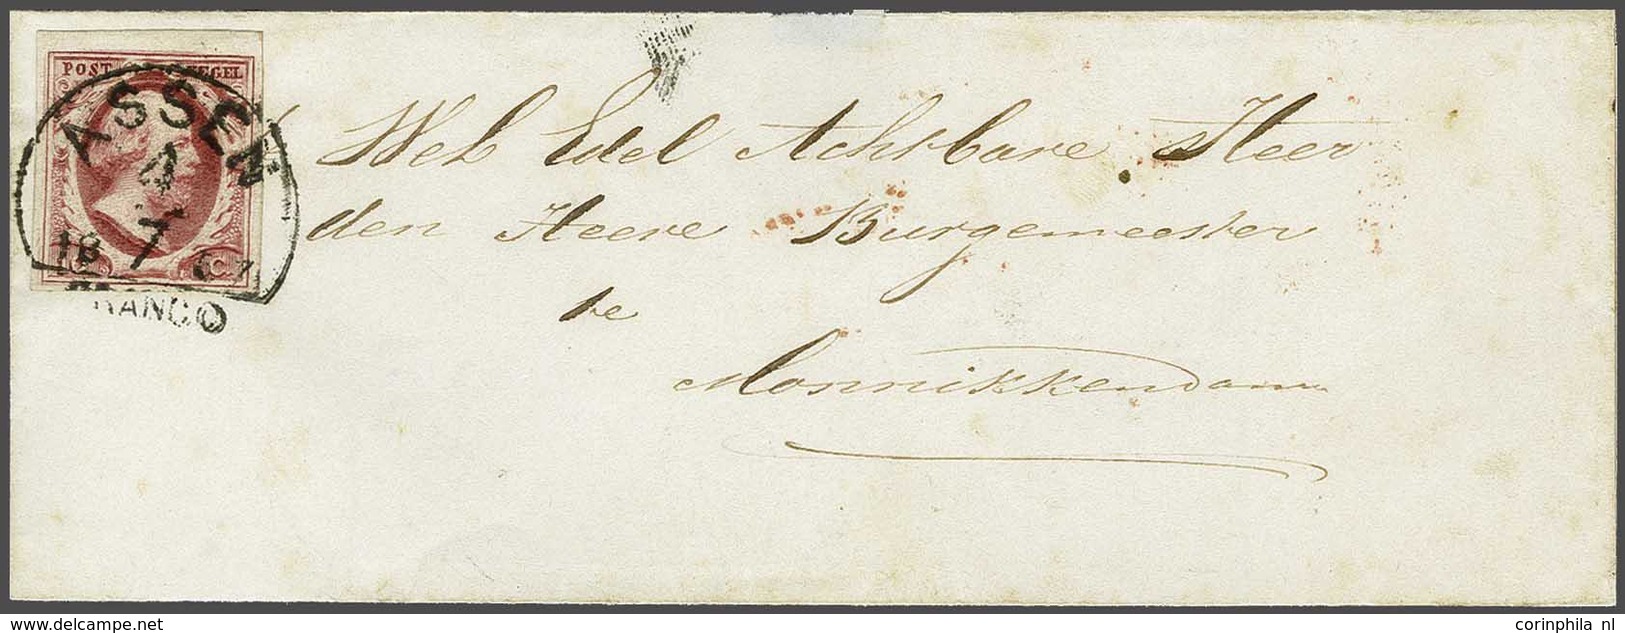 POST ZEGEL
ASSEN
4
18 7
FRANCO
Wel Edel Achtbare Heer
den Heere Burgemeester
te
Monnikkendam
www.delcampe.net
corinphila nl